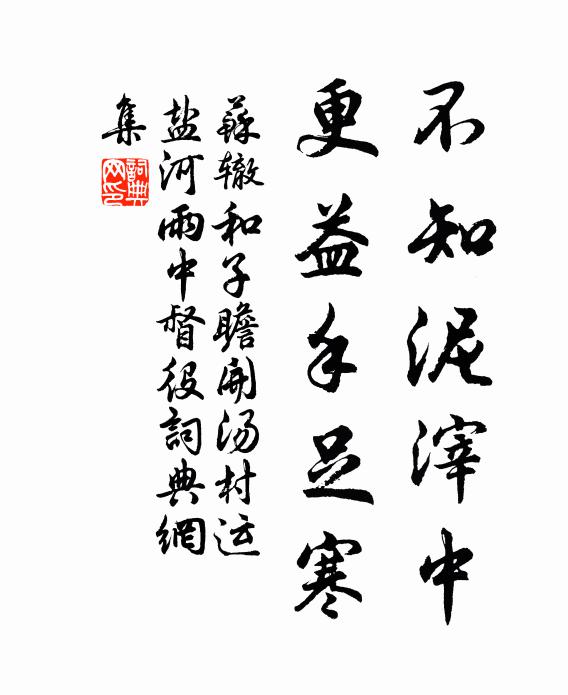 不知泥滓中
更益手足寒
蘇辙和子瞻開汤村运
盐河雨中督役詞典網
集
詞典
网印